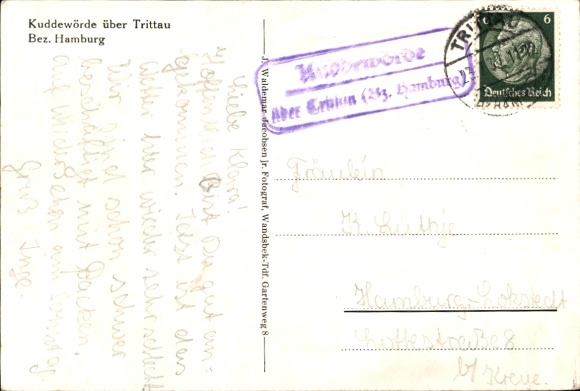 Kuddewörde über Trittau
Bez. Hamburg
Liebe Klara!
gut an-
gekommen. Jetzt ist das
Wetter hier wieder sehr schlecht
Wir sind schon schwer
beschäftigt mit Packen,
auf Wiedersehen am Sonntag
Gruß Inge.
J. Waldemar Jacobsen jr. Fotograf, Wandsbek-Tdf. Gartenweg 8
Kuddewörde
über Trittau (Bz. Hamburg)
6 6
Deutsches Reich
Fräulein
K. Lüthje
Hamburg-Lokstedt
b/ Kreue.